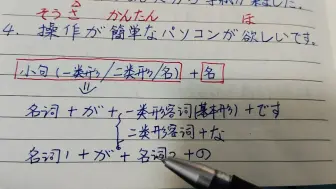 手紙が来ました。
そうさ かんたん ほ
4. 操作が簡単なパソコンが欲しいです。
小句(一类形/二类形/名)+名
名词+が+一类形容词(基本形)+です
二类形容词+な
名词1+が+名词2+の